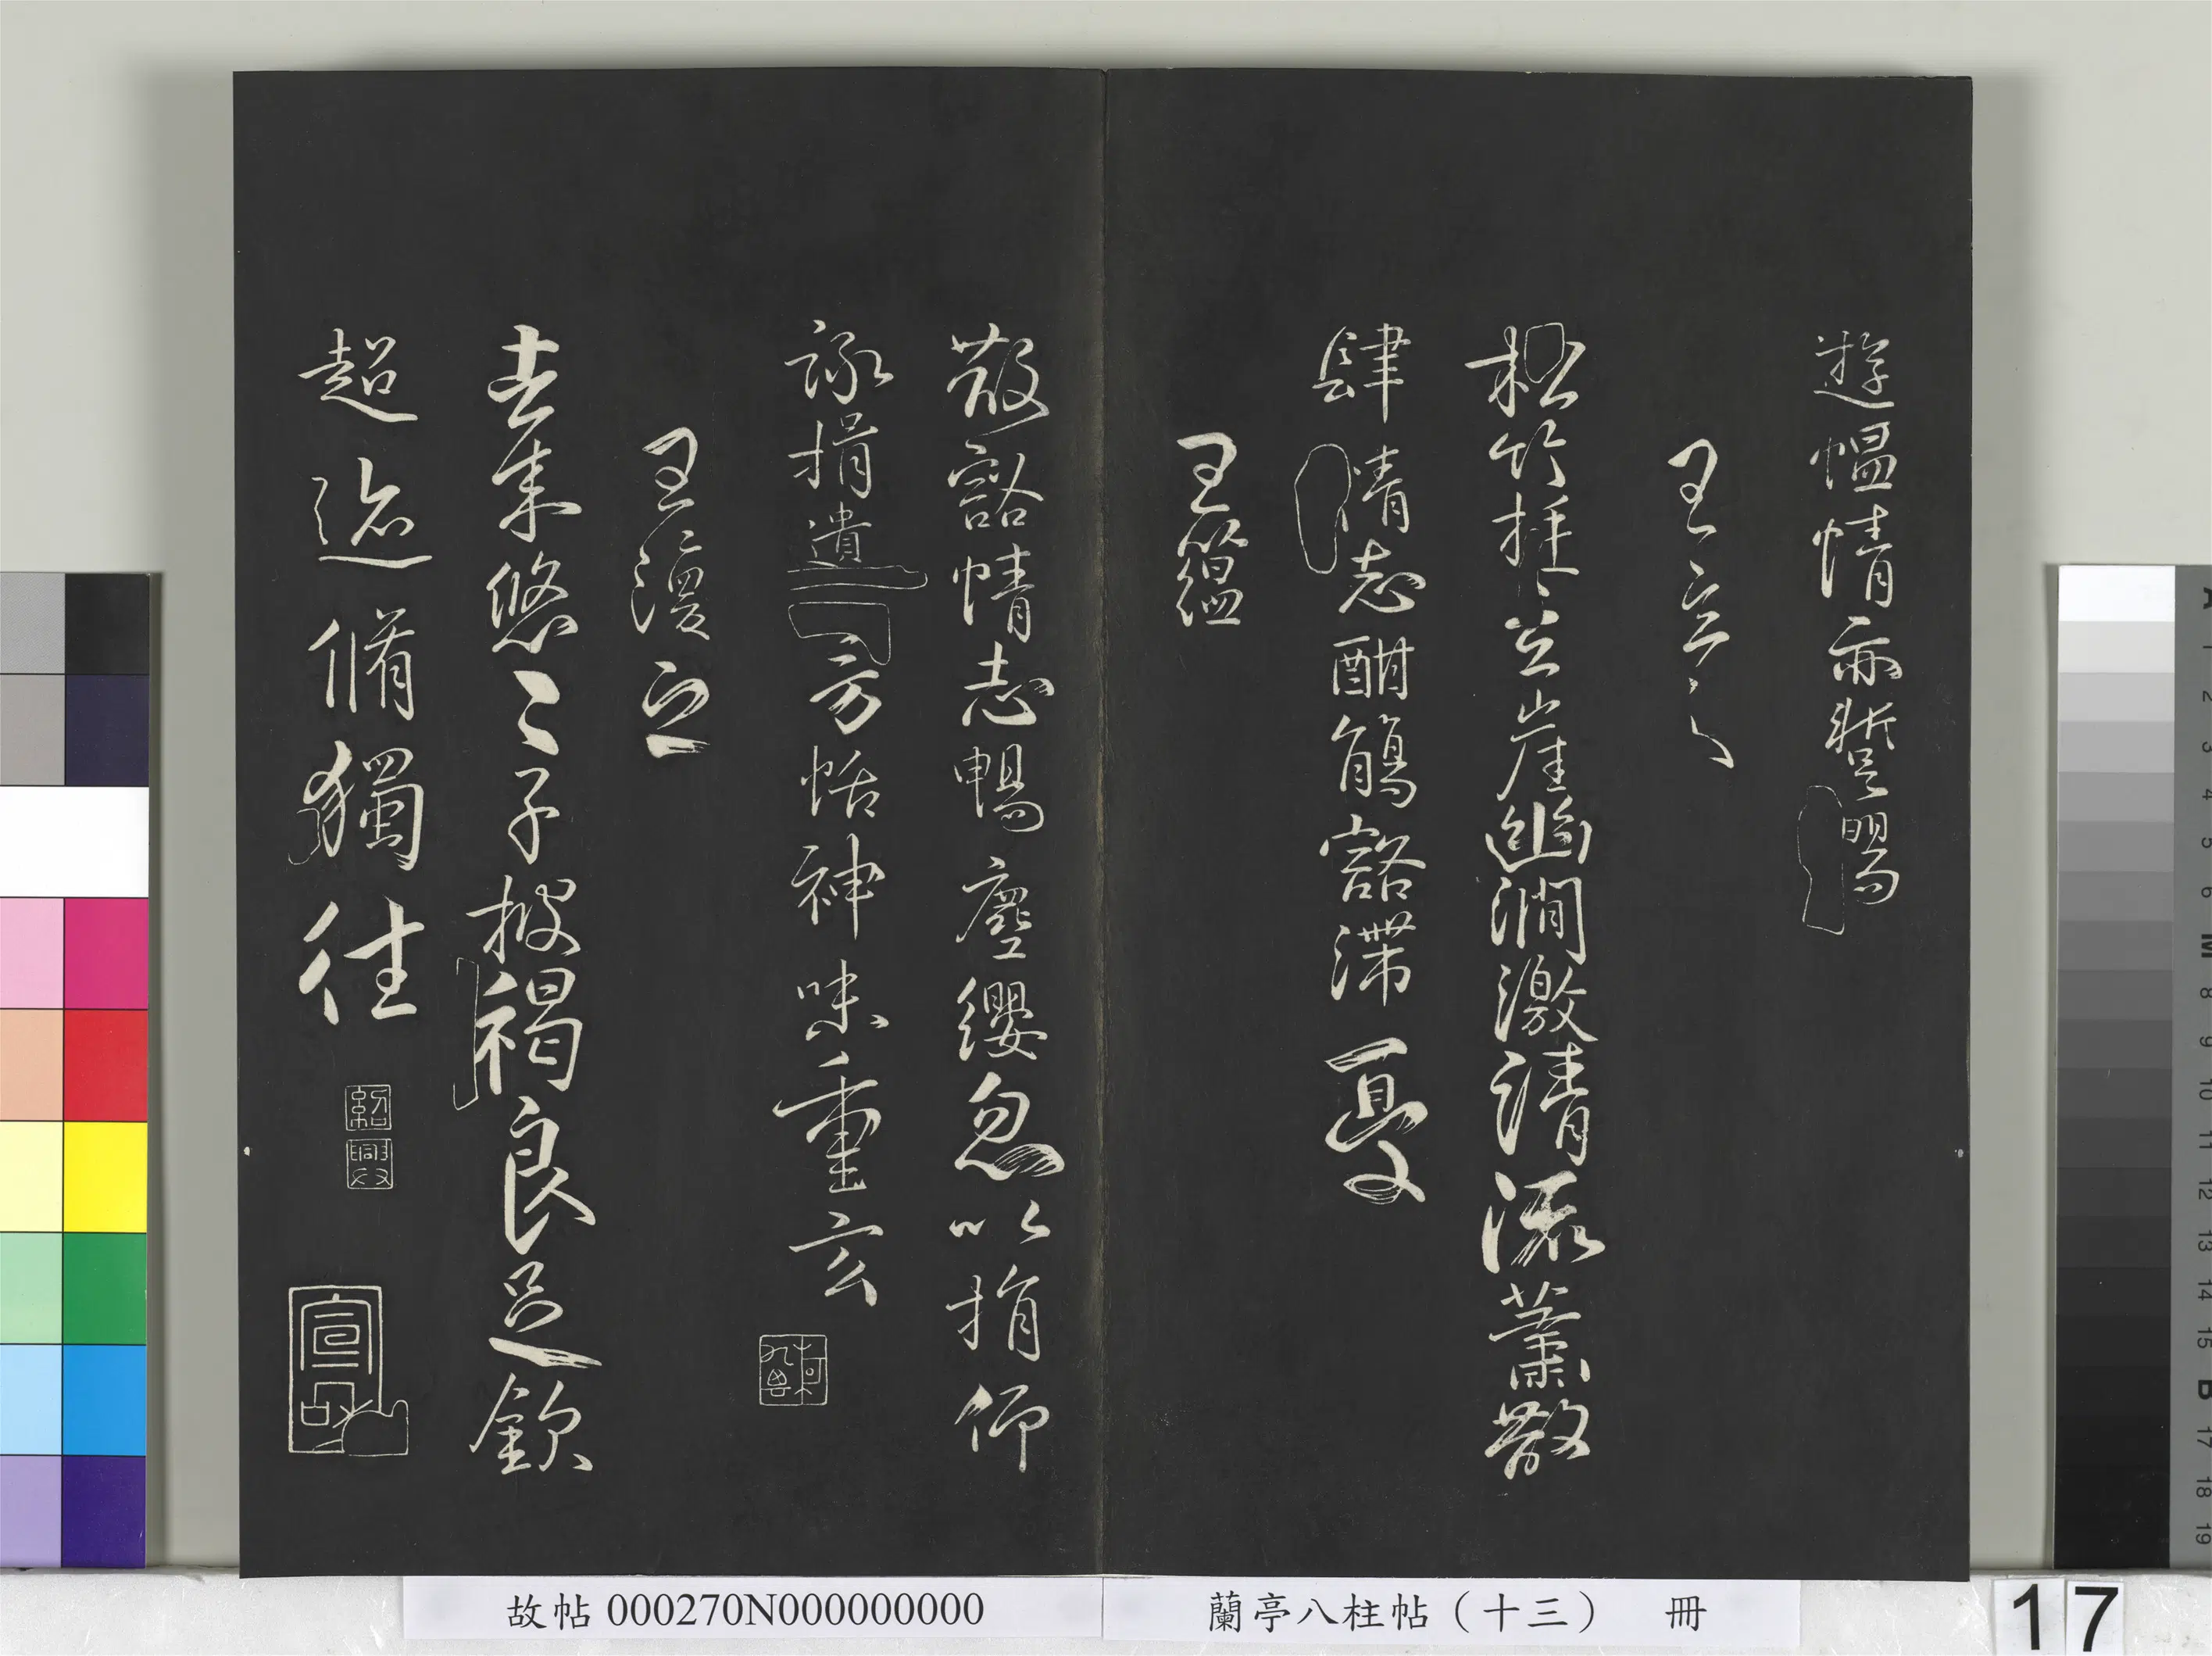 遊慍情亦蹔暢
王玄之
松竹挺嵒崖幽澗激清流蕭散
肆情志酣觴豁滯憂
王蘊
散豁情志暢塵纓忽以捐仰
詠挹遺芳恬神味重玄
王渙之
去來悠々子披褐良足欽
超迹脩獨往
紹興
蘭亭八柱帖（十三） 冊
故帖 000270N000000000
17